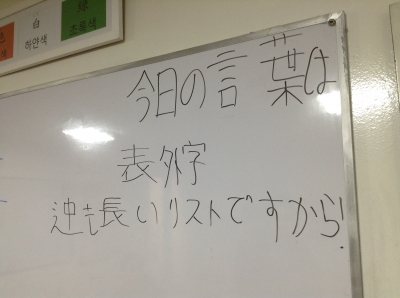 白
하얀색
초록색
今日の言葉は
表外字
長いリストですから!